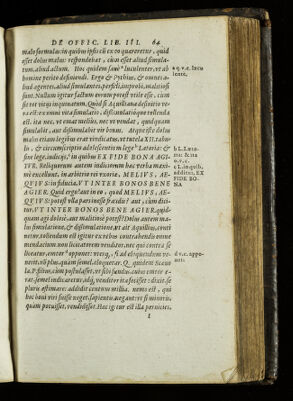 DE OFFIC. LIB. III. 64
malo formulas: in quibus ipsis cũ ex eo quæreretur, quid
esset dolus malus: respondebat, cùm esset aliud simula-
tum, aliud actum. Hoc quidem sanè luculenter, ut ab
homine perito definiendi. Ergo & Pythius, & omnes a-
liud agentes, aliud simulantes, perfidi, improbi, malitiosi
sunt. Nullum igitur factum eorum potest utile esse, cùm
sit tot vitiis inquinatum. Quòd si Aquiliana definitio ve-
ra est: ex omni vita simulatio, dissimulatióque tollenda
est. ita nec, ut emat melius, nec ut vendat, quidquam
simulabit, aut dissimulabit vir bonus. Atque iste dolus
malus etiam legibus erat vindicatus, ut tutela XII. tabu-
lis, & circumscriptio adolescentium lege Lætoria: &
sine lege, iudiciis, in quibus EX FIDE BONA AGI-
TVR. Reliquorum autem iudiciorum hæc verba maxi-
mè excellunt, in arbitrio rei uxoriæ, MELIVS, AE-
QVIVS: in fiducia, VT INTER BONOS BENE
AGIER. Quid ergo? aut in eo, quod MELIVS, AE-
QVIVS: potest ulla pars inesse fraudis? aut, cùm dici-
tur, VT INTER BONOS BENE AGIER, quid-
quam agi dolosè, aut malitiosè potest? Dolus autem ma-
lus simulatione, & dissimulatione, ut ait Aquilius, conti-
netur. tollendum est igitur ex rebus contrahendis omne
mendacium. non licitatorem venditor, nec qui contra se
liceatur, emtor opponet: uterq, si ad eloquendum ve-
nerit, nõ plus, quàm semel, eloquetur. Q. quidem Scæuo
la P. filius, cùm postulasset, ut sibi fundus, cuius emtor e-
rat, semel indicaretur, idq, venditor ita fecisset: dixit se
pluris æstimare: addidit centum millia. nemo est, qui
hoc boni viri fuisse neget, sapientis, negant: ut si minoris,
quàm potuisset, vendidisset. Hæc igitur est illa pernicies,
I